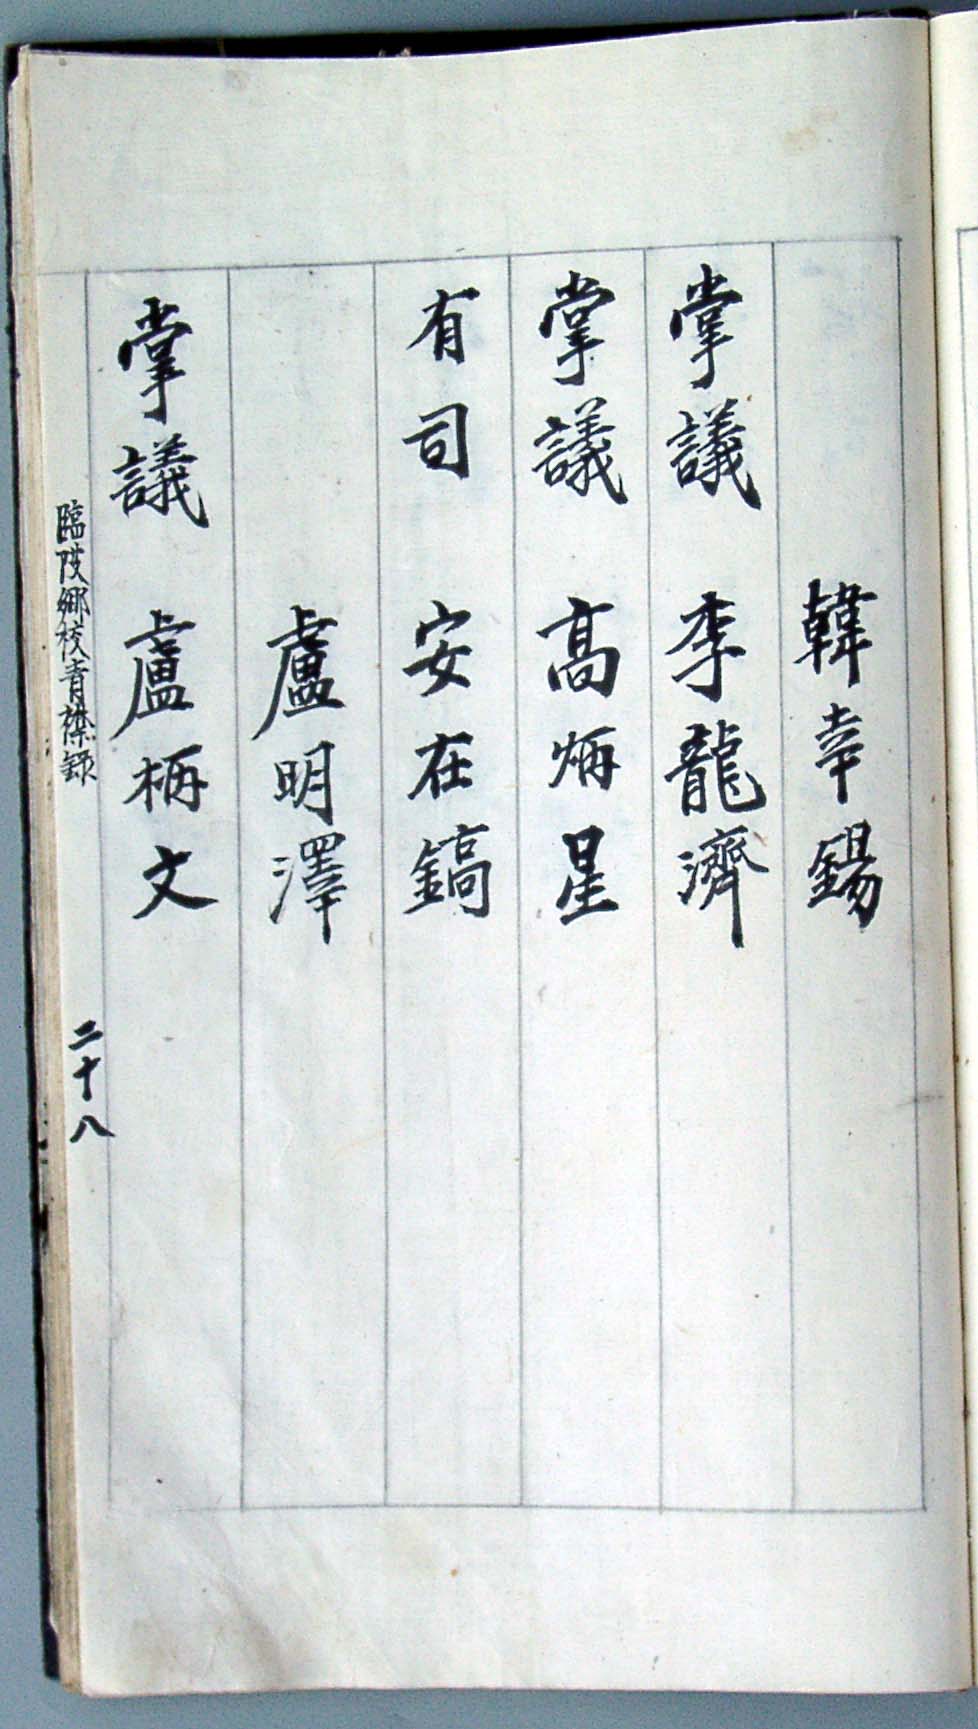 韓幸錫
掌議 李龍濟
掌議 高炳星
有司 安在鎬
盧明澤
掌議 盧柄文
臨陂鄉校青襟錄
二十八